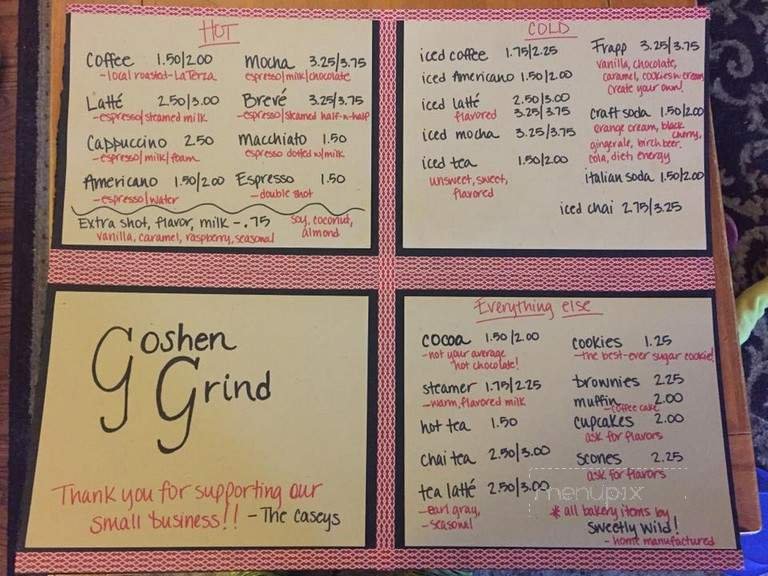 HOT
Coffee 1.50/2.00
-local roasted-LaTerza
Latté 2.50/3.00
-espresso/steamed milk
Cappuccino 2.50
-espresso/milk/foam
Americano 1.50/2.00
-espresso/water
Mocha 3.25/3.75
espresso/milk/chocolate
Brevé 3.25/3.75
-espresso/steamed half-n-half
Macchiato 1.50
espresso dotted w/milk
Espresso 1.50
-double shot
Extra shot, flavor, milk -.75
vanilla, caramel, raspberry, seasonal
soy, coconut,
almond
COLD
iced coffee 1.75/2.25
iced Americano 1.50/2.00
iced latté 2.50/3.00
flavored 3.25/3.75
iced mocha 3.25/3.75
iced tea 1.50/2.00
unsweet, sweet,
flavored
Frapp 3.25/3.75
vanilla, chocolate,
caramel, cookies-n-cream
create your own!
craft soda 1.50/2.00
orange cream, black
cherry,
gingerale, birch beer
cola, diet, energy
italian soda 1.50/2.00
iced chai 2.75/3.25
Goshen
Grind
Thank you for supporting our
small business!! -The Caseys
Everything else
cocoa 1.50/2.00
-not your average
hot chocolate!
steamer 1.75/2.25
-warm, flavored milk
hot tea 1.50
chai tea 2.50/3.00
tea latté 2.50/3.00
-earl gray,
-seasonal
cookies 1.25
-the best-ever sugar cookie!
brownies 2.25
muffin 2.00
-coffee cake
cupcakes 2.00
ask for flavors
scones 2.25
ask for flavors
menupix
* all bakery items by
sweetly wild!
- home manufactured